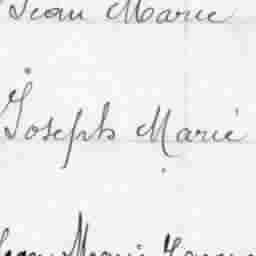 Jean Marie
Joseph Marié
Jean Marie